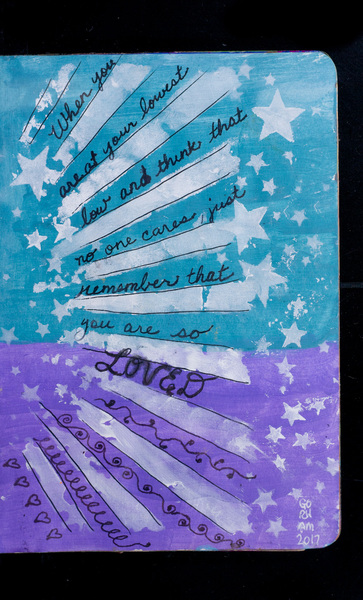 When you
are at your lowest
low and think that
no one cares, just
remember that
you are so
LOVED
2017